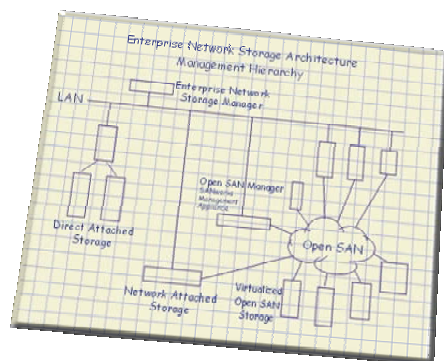 Enterprise Network Storage Architecture
Management Hierarchy
Enterprise Network
Storage Manager
LAN
Open SAN Manager
SANworks
Management
Appliance
Direct Attached
Storage
Open SAN
Network Attached
Storage
Virtualized
Open SAN
Storage